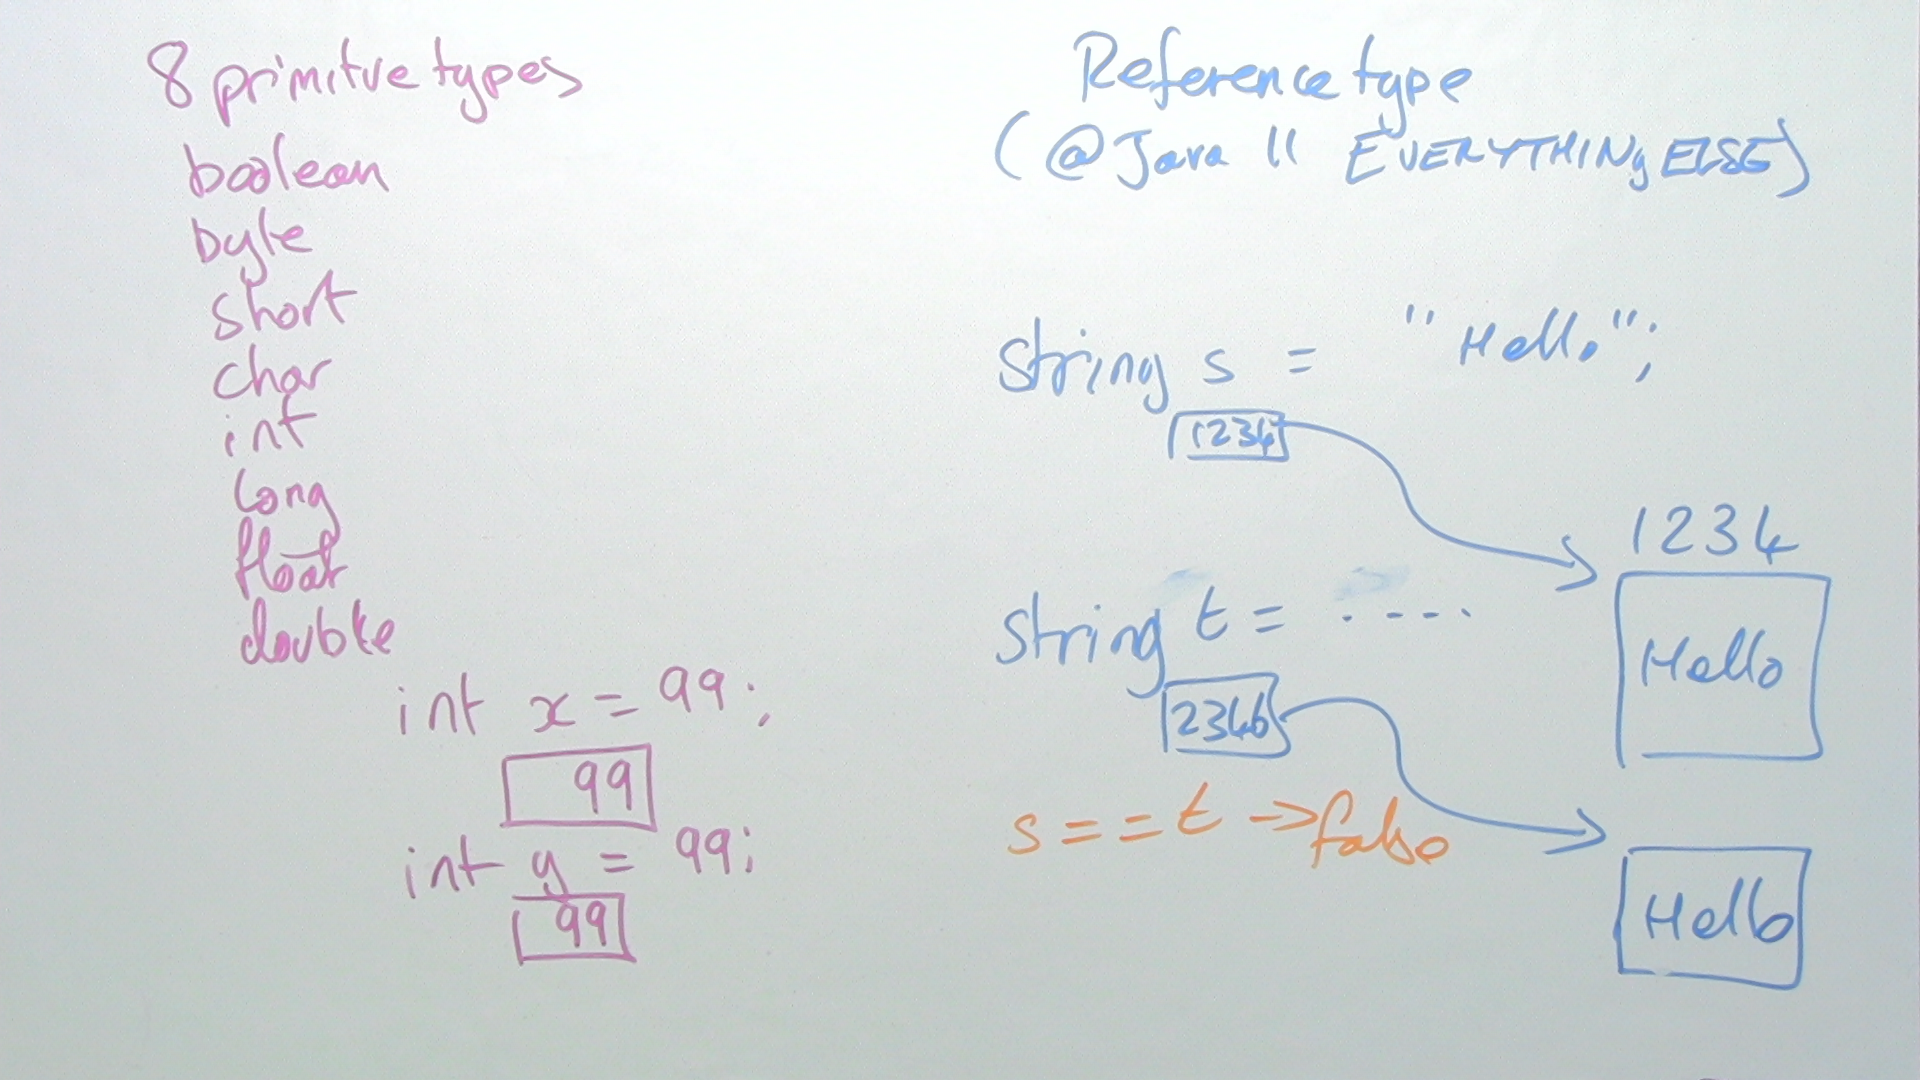 8 primitve types
boolean
byte
short
char
int
long
float
double
int x = 99;
99
int y = 99;
99
Reference type
(@Java 11 EVERYTHING ELSE)
String s = "Hello";
1234
1234
Hello
String t = .----
2346
s == t -> false
Hello